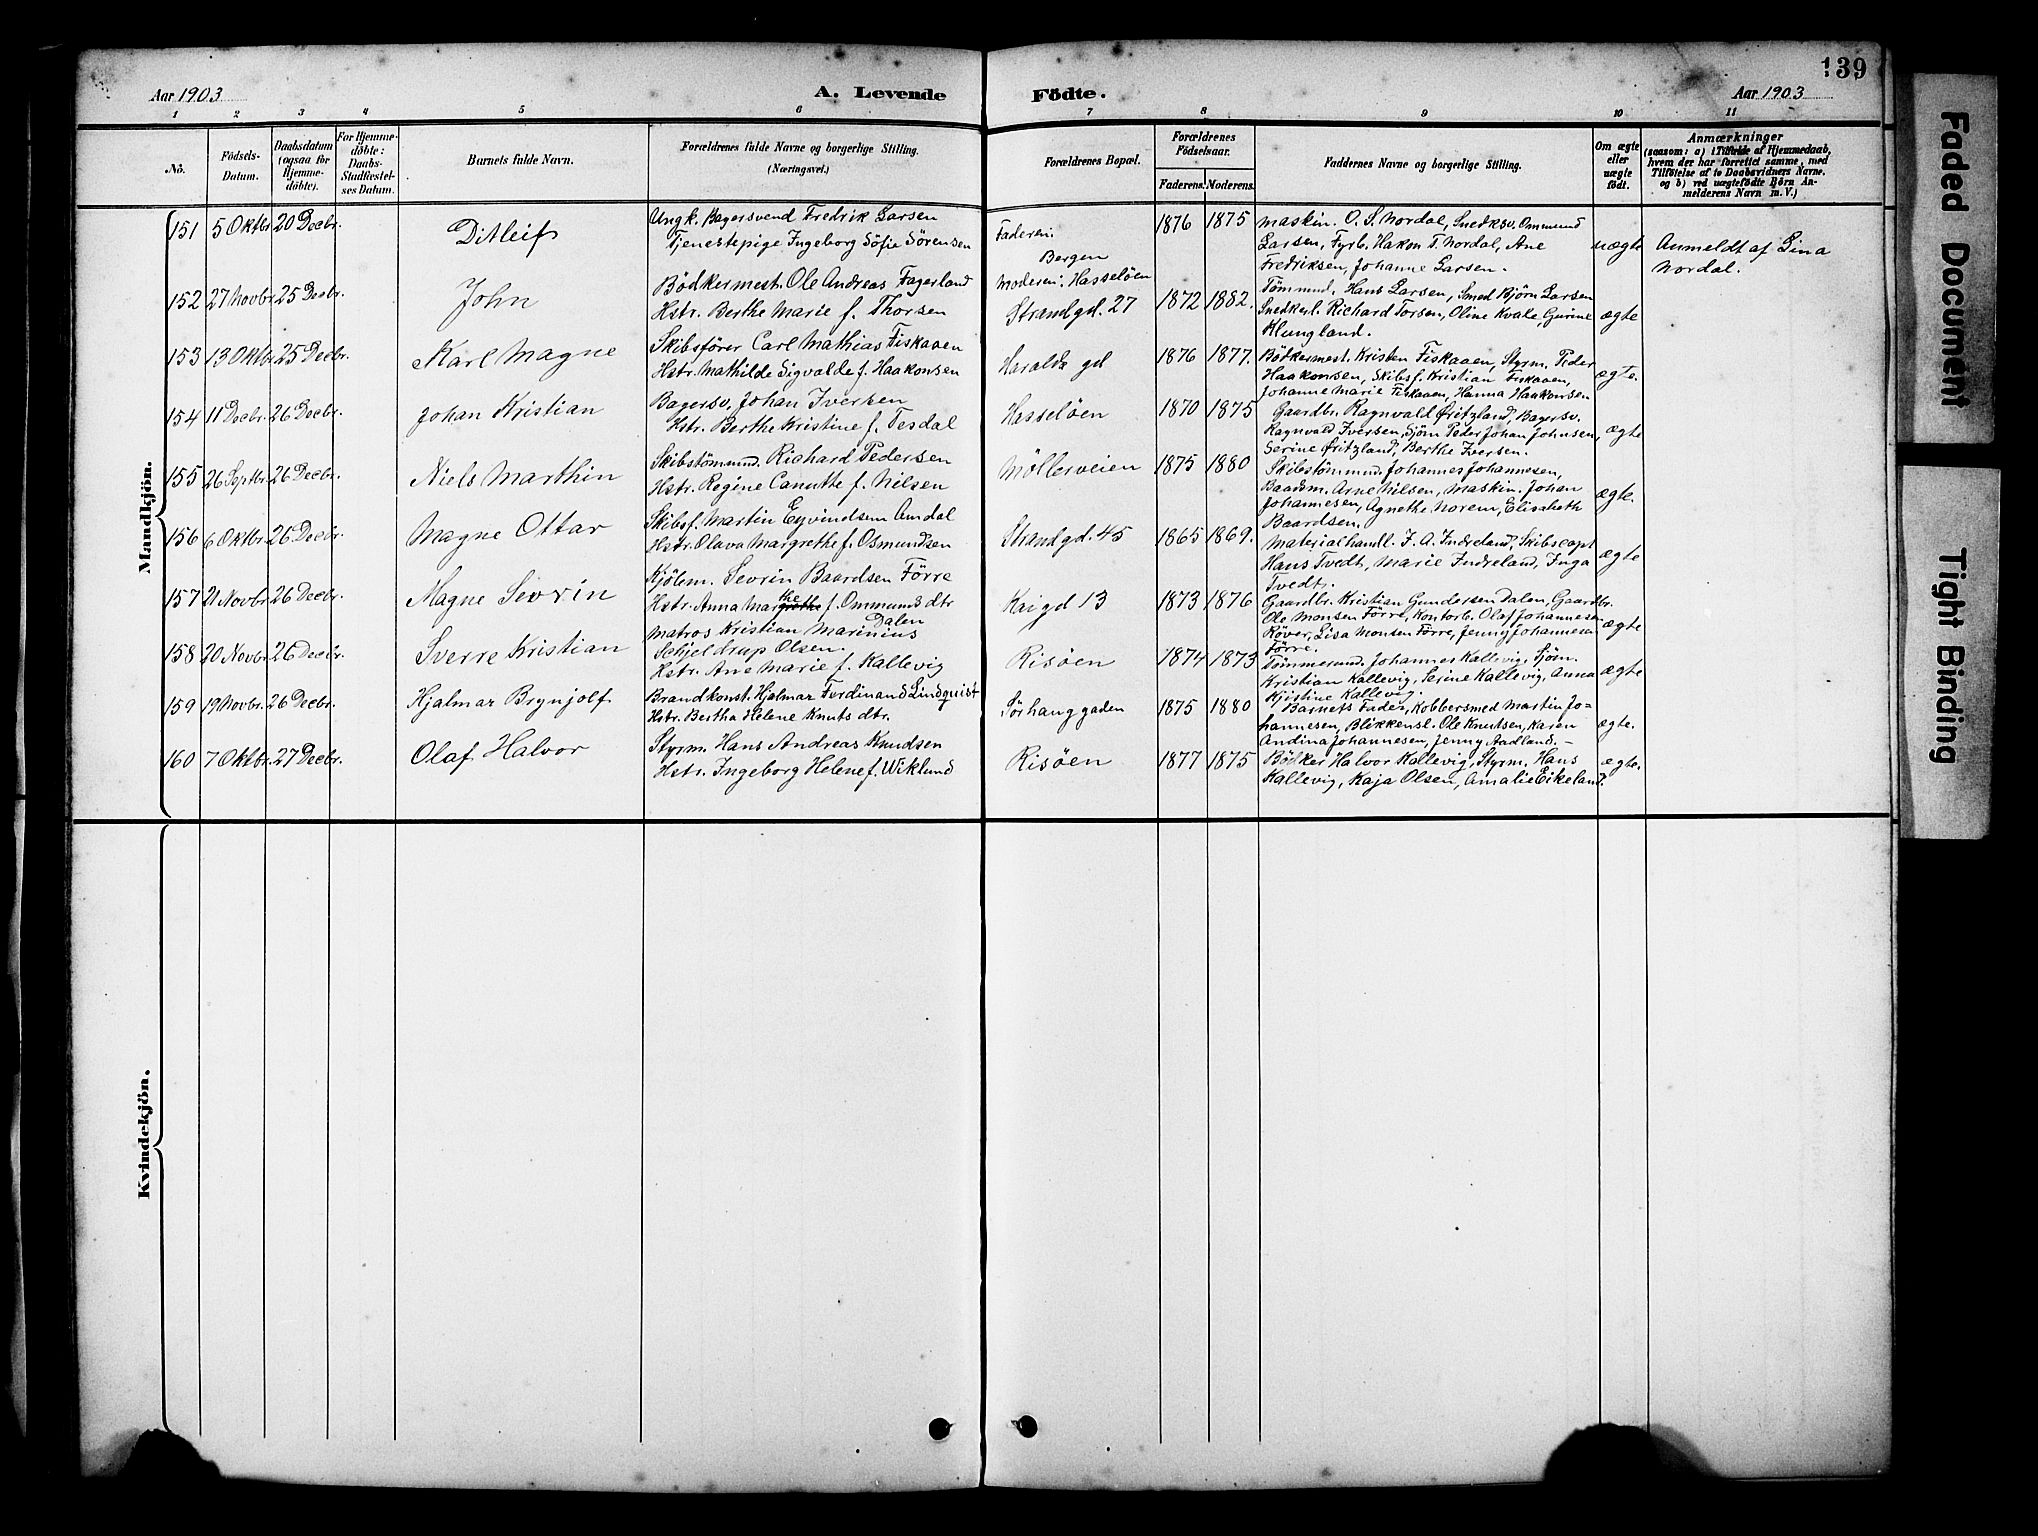 139
Aar 1903
A. Levende Födte.
Aar 1903
1 2 3 4 5 6 7 8 9 10 11
No.
Födsels-
Datum.
Daabsdatum
(ogsaa for
Hjemme-
döbte).
For Hjemme-
döbte:
Daabs-
Stadfæstel-
ses Datum.
Barnets fulde Navn.
Forældrenes fulde Navne og borgerlige Stilling.
(Næringsvei.)
Forældrenes Bopæl.
Forældrenes
Födselsaar.
Faderens. Moderens.
Faddernes Navne og borgerlige Stilling.
Om ægte
eller
uægte
födt.
Anmærkninger
(saasom: a) i Tilfælde af Hjemmedaab,
hvem der har forrettet samme, med
Tilföielse af to Daabsvidners Navne,
og b) ved uægtefödte Börn An-
melderens Navn m. V.)
Mandkjön.
151 5 Oktbr. 20 Decbr.
Ditleif
Ungk. Bagersvend Fredrik Larsen
Tjenestepige Ingeborg Sofie Sörensen
Faderen:
Bergen
Moderen: Hasselöen
1876 1875
Maskin. O. S. Nordal, Snedksv. Ommund
Larsen, Fyrb. Hakon T. Nordal, Ane
Fredriksen, Johanne Larsen.
uægte
Anmeldt af Lina
Nordal.
152 27 Novbr. 25 Decbr.
John
Bödkermest. Ole Andreas Fagerland
Hstr. Berthe Marie f. Thorsen
Strandgd. 27
1872 1882.
Tömmmd. Hans Larsen, Smed Björn Larsen
Snedkerl. Richard Torsen, Oline Kvale, Gurine
Klungland.
ægte
153 13 Oktbr. 25 Decbr.
Karl Magne
Skibsförer Carl Mathias Fiskaaen
Hstr. Mathilde Sigvalde f. Haakonsen
Haralds gd
1876 1877.
Bödkermest. Kristen Fiskaaen, Styrm. Peder
Haakonsen, Skibsf. Kristian Fiskaaen,
Johanne Marie Fiskaaen, Hanna Haakonsen
ægte.
154 11 Decbr. 26 Decbr.
Johan Kristian
Bagersv. Johan Iversen
Hstr. Berthe Kristine f. Tesdal
Hasselöen
1870 1875
Gaardbr. Ragnvald Öritzland, Bagersv.
Ragnvald Iversen, Sjöm Peder Johan Johnsen,
Serine Öritzland, Berthe Iversen.
ægte
155 26 Septbr. 26 Decbr.
Niels Marthin
Skibstömmmd. Richard Pedersen
Hstr. Regine Canutte f. Nilsen
Möllerveien
1875 1880
Skibstömmmd. Johannes Johannesen,
Baadsm. Arne Nilsen, Maskin. Johan
Johannesen, Agnethe Norem, Elisabeth
Baardsen.
ægte.
156 6 Oktbr. 26 Decbr.
Magne Ottar
Skibsf. Martin Eyvindsen Amdal
Hstr. Olava Margrethe f. Osmundsen
Strandgd. 45
1865 1869.
Materialhandl. F. A. Indreland, Skibscapt
Hans Tvedt, Marie Indreland, Inga
Tvedt.
ægte
157 21 Novbr. 26 Decbr.
Magne Sevrin
Kjölem. Sevrin Baardsen Förre
Hstr. Anna Marthe f. Ommunds dtr
Dalen
Kaigd 13
1873 1876
Gaardbr. Kristian Gundersen Dalen, Gaardbr.
Ole Monsen Förre, Kontorb. Olaf Johannesen
Röver, Lisa Monsen Förre, Jenny Johannesen
Förre.
ægte
158 20 Novbr. 26 Decbr.
Sverre Kristian
Matros Kristian Marinius
Schjeldrup Olsen.
Hstr. Ane Marie f. Kallevig
Risöen
1874 1873
Tömmermd. Johannes Kallevig, Sjöm.
Kristian Kallevig, Serine Kallevig, Anna
Kristine Kallevig.
ægte
159 19 Novbr. 26 Decbr.
Hjalmar Brynjolf
Brandkonst. Hjalmar Ferdinand Lindquist
Hstr. Bertha Helene Knuts dtr.
Sörhauggaden
1875 1880
Barnets Fader, Kobbersmed Martin Jo-
hannesen, Blikkensl. Ole Knutsen, Karen
Andina Johannesen, Jenny Aadland. –
ægte.
160 7 Oktbr. 27 Decbr.
Olaf Halvor
Styrm. Hans Andreas Knudsen
Hstr. Ingeborg Helene f. Wiklund
Risöen
1877 1875
Bödker Halvor Kallevig, Styrm. Hans
Kallevig, Kaja Olsen, Amalie Eikeland.
ægte.
Kvindekjön.
Faded Document
Tight Binding